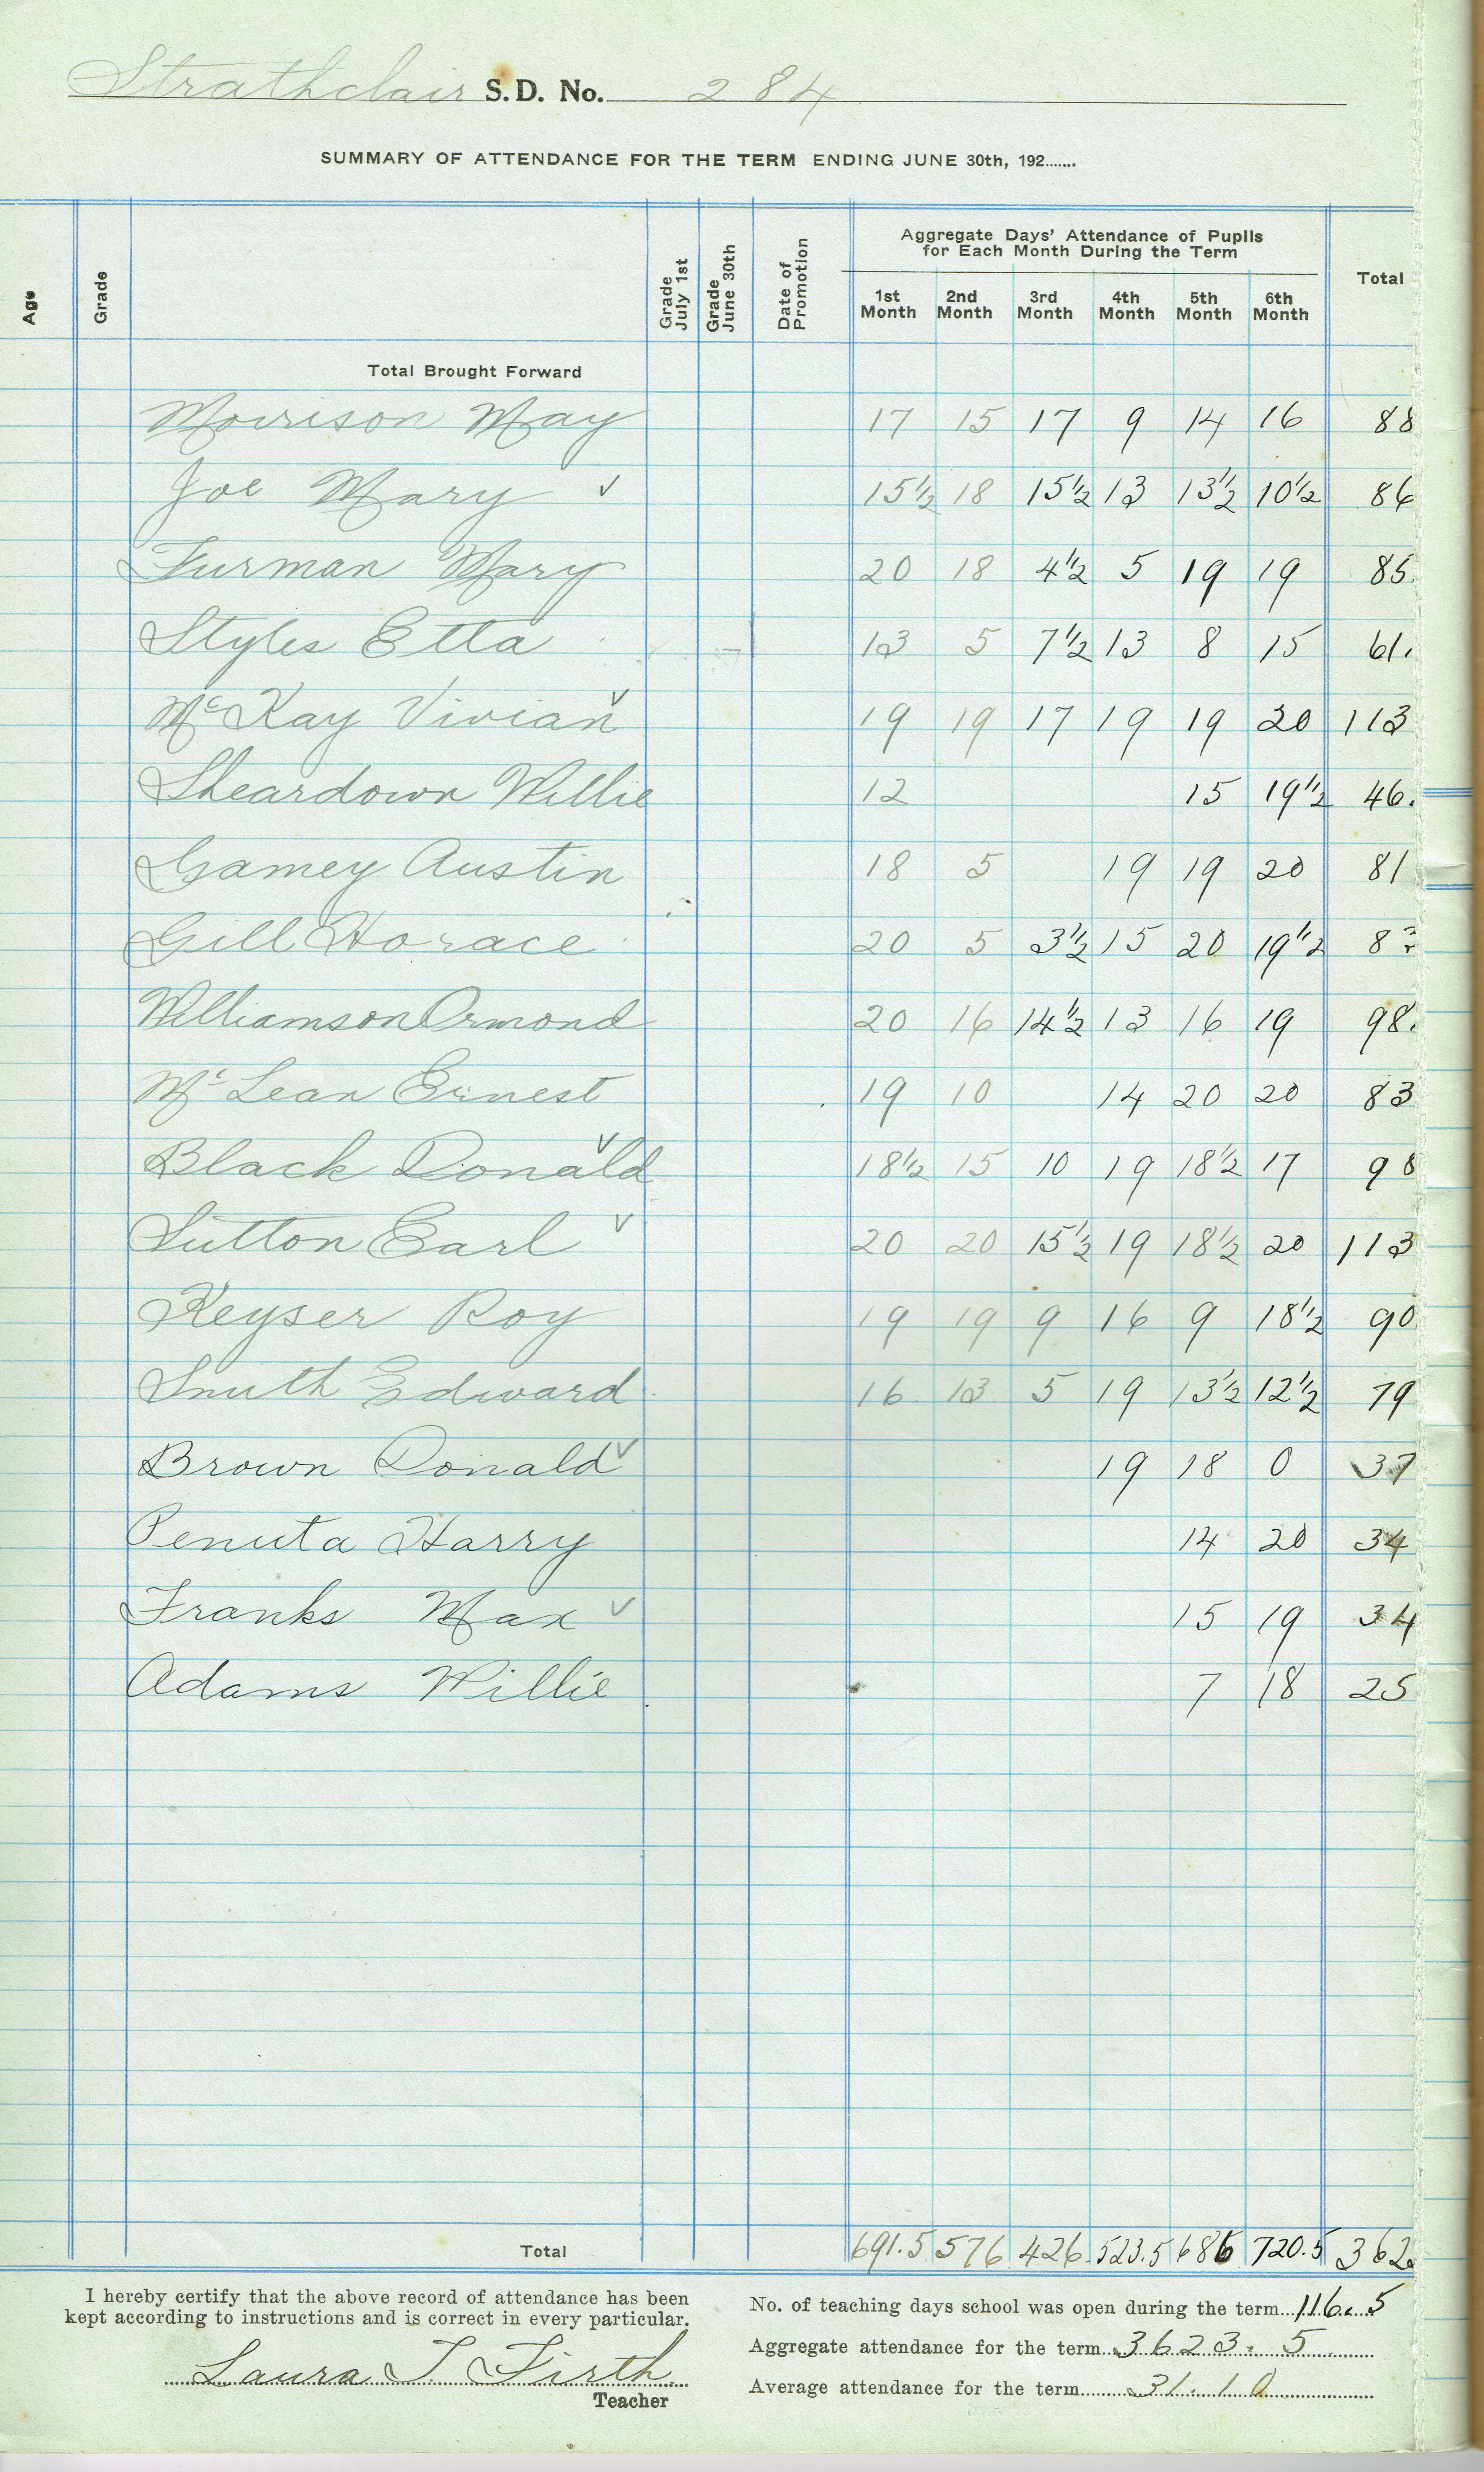 Strathclair S.D. No. 284
SUMMARY OF ATTENDANCE FOR THE TERM ENDING JUNE 30th, 192.......
Age Grade Grade July 1st Grade June 30th Date of Promotion Aggregate Days' Attendance of Pupils for Each Month During the Term Total
1st Month 2nd Month 3rd Month 4th Month 5th Month 6th Month
Total Brought Forward
Morrison May 17 15 17 9 14 16 88
Joe Mary ✓ 15½ 18 15½ 13 13½ 10½ 86
Furman Mary 20 18 4½ 5 19 19 85.
Styles Etta 13 5 7½ 13 8 15 61.
McKay Vivian ✓ 19 19 17 19 19 20 113
Sheardown Willie 12 15 19½ 46.
Gamey Austin 18 5 19 19 20 81
Gill Horace 20 5 3½ 15 20 19½ 8
Williamson Ormond 20 16 14½ 13 16 19 98.
McLean Ernest 19 10 14 20 20 83
Black Donald ✓ 18½ 15 10 19 18½ 17 98
Sutton Earl ✓ 20 20 15½ 19 18½ 20 113
Keyser Roy 19 19 9 16 9 18½ 90
Smith Edward 16 13 5 19 13½ 12½ 79
Brown Donald ✓ 19 18 0 37
Penuta Harry 14 20 34
Franks Max ✓ 15 19 34
Adams Willie 7 18 25
Total 691.5 576 426. 523.5 686 720.5 362
I hereby certify that the above record of attendance has been
kept according to instructions and is correct in every particular.
Laura T. Firth
Teacher
No. of teaching days school was open during the term...116.5
Aggregate attendance for the term 3623.5
Average attendance for the term 31.10